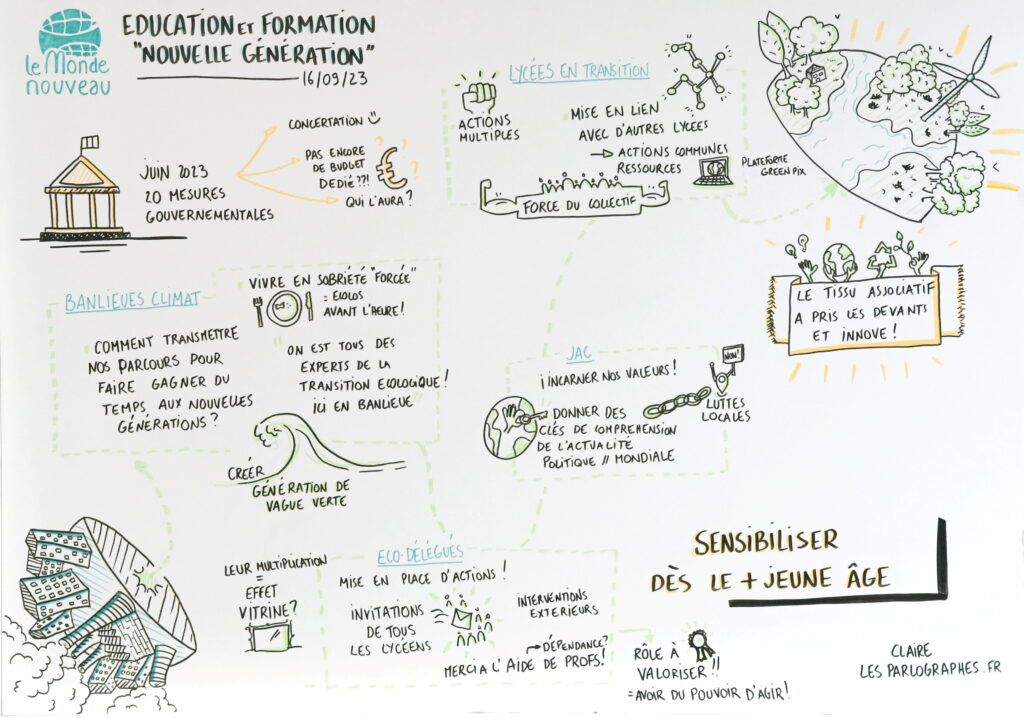 le Monde
nouveau
EDUCATION ET FORMATION
"NOUVELLE GÉNÉRATION"
16/09/23
JUIN 2023
20 MESURES
GOUVERNEMENTALES
CONCERTATION
PAS ENCORE
DE BUDGET
DEDIÉ ??!
QUI L'AURA ?
LYCÉES EN TRANSITION
ACTIONS
MULTIPLES
MISE EN LIEN
AVEC D'AUTRES LYCÉES
→ ACTIONS COMMUNES
RESSOURCES
PLATEFORME
GREEN PIX
FORCE DU COLLECTIF
LE TISSU ASSOCIATIF
A PRIS LES DEVANTS
ET INNOVE !
BANLIEUES CLIMAT
COMMENT TRANSMETTRE
NOS PARCOURS POUR
FAIRE GAGNER DU
TEMPS AUX NOUVELLES
GÉNÉRATIONS ?
VIVRE EN SOBRIÉTÉ "FORCÉE"
= ECOLOS
AVANT L'HEURE !
"ON EST TOUS DES
EXPERTS DE LA
TRANSITION ECOLOGIQUE !
ICI EN BANLIEUE"
CRÉER
GÉNÉRATION DE
VAGUE VERTE
JAC
¡ INCARNER NOS VALEURS !
DONNER DES
CLÉS DE COMPREHENSION
DE L'ACTUALITÉ
POLITIQUE // MONDIALE
NON !
LUTTES
LOCALES
ECO-DÉLÉGUÉS
LEUR MULTIPLICATION
=
EFFET
VITRINE ?
MISE EN PLACE D'ACTIONS !
INVITATIONS
DE TOUS
LES LYCÉENS
INTERVENTIONS
EXTERIEURS
→ DÉPENDANCE?
MERCI A L'AIDE DE PROFS !
RÔLE À
VALORISER !!
= AVOIR DU POUVOIR D'AGIR !
SENSIBILISER
DÈS LE + JEUNE ÂGE
CLAIRE
LES PARLOGRAPHES.FR